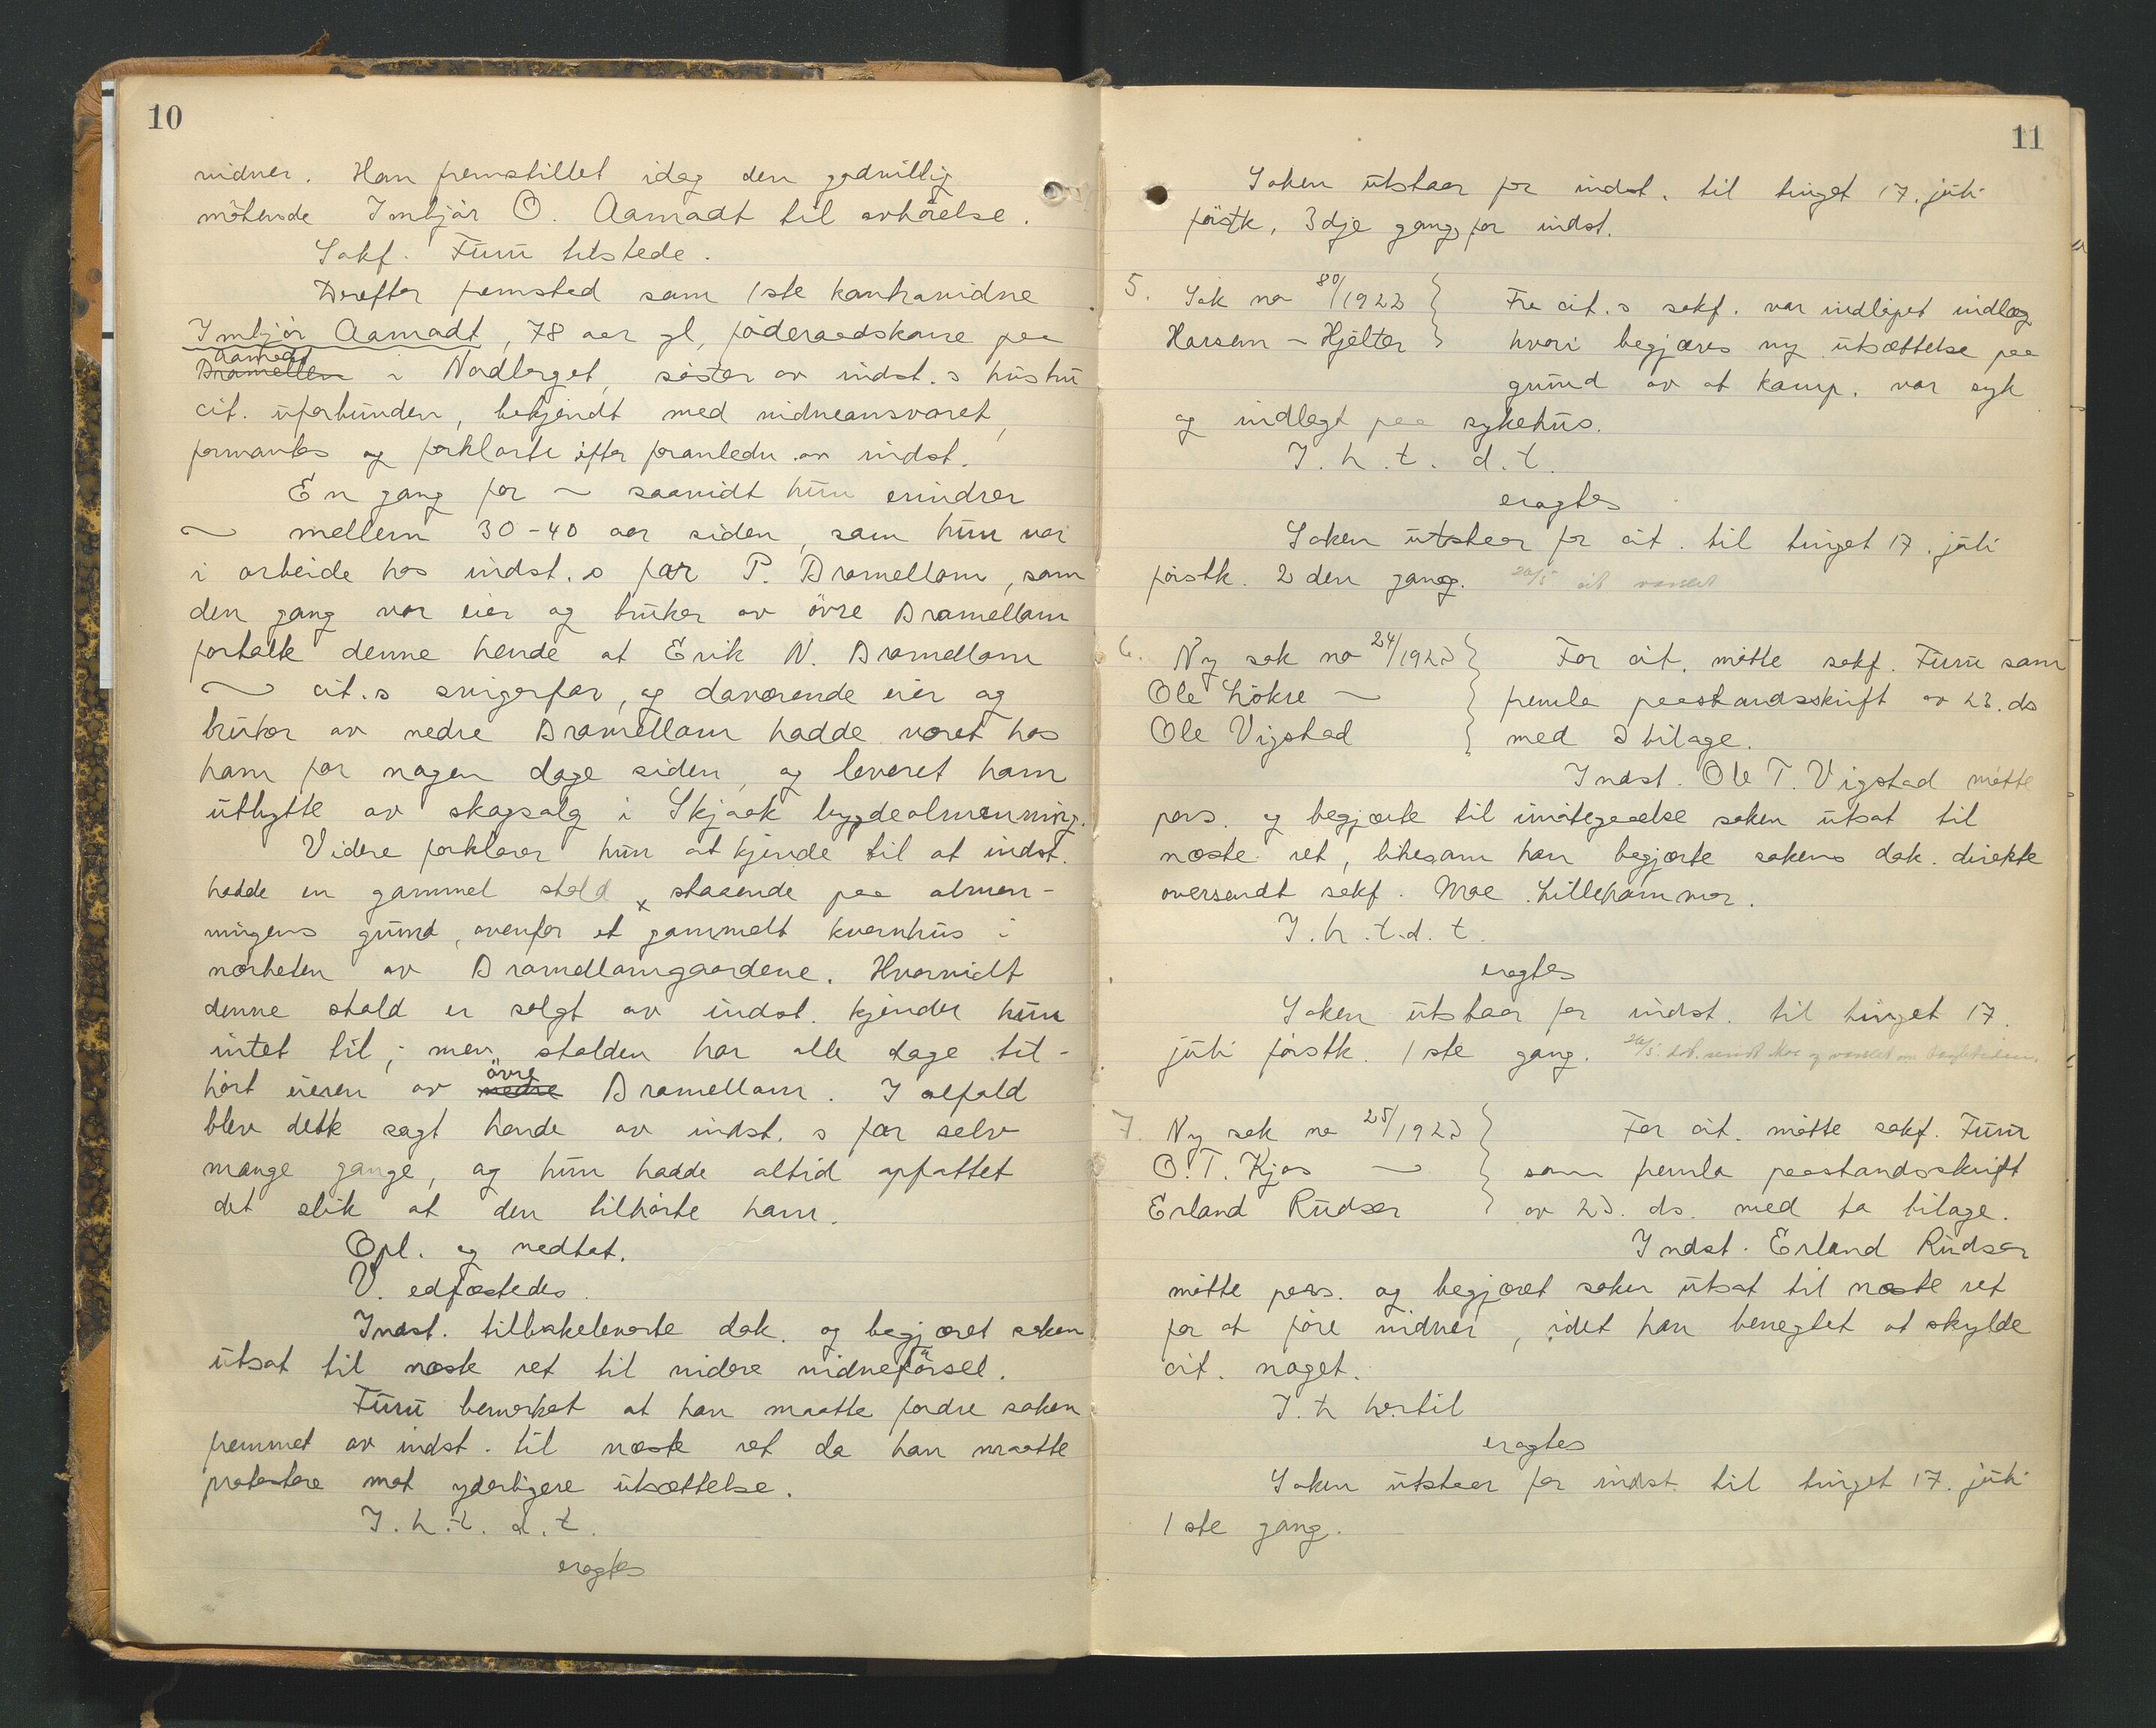 10
vidner. Han fremstillet idag den godvillig
mötende Imbjör O. Aamodt til avhörelse.
Sakf. Furu tilstede.
Derefter fremstod som 1ste kontravidne
Imbjör Aamodt, 78 aar gl, föderaadskone paa
Aamodt
Dramellem i Nordberget, söster av indst.s hustru
cit. uforbunden, bekjendt med vidneansvaret,
formantes og forklarte efter foranledn. av indst.
En gang for ~ saavidt hun erindrer
~ mellem 30-40 aar siden, som hun var
i arbeide hos indst.s far P. Dramellom, som
den gang var eier og bruker av övre Dramellom
fortalte denne hende at Erik N. Dramellom
~ cit.s svigerfar, og daværende eier og
bruker av nedre Dramellom hadde været hos
ham for nogen dage siden, og leveret ham
utbytte av skogsalg i Skjaak bygdealmenning.
Videre forklarer hun at kjende til at indst.
hadde en gammel stald x staaende paa almen-
ningens grund, ovenfor et gammelt kvernhus i
nærheten av Dramellomgaardene. Hvorvidt
denne stald er solgt av indst. kjender hun
intet til; men stalden har alle dage til-
övre
hört eieren av nedre Dramellom. I alfald
blev dette sagt hende av indst.s far selv
mange gange, og hun hadde altid opfattet
det slik at den tilhörte ham.
Opl. og vedtat.
V. edfæstedes.
Indst. tilbakeleverte dok. og begjæret saken
utsat til næste ret til videre vidneförsel.
Furu bemerket at han maatte fordre saken
fremmet av indst. til næste ret da han maatte
protestere mot yderligere utsættelse.
I. h. t. d. t.
eragtes
11
Saken utstaar for indst. til tinget 17. juli
förstk, 3dje gang for indst.
5. Sak no 80/1922 } Fra cit.s sakf. var indløpet indlæg
Harsem ~ Hjelter } hvori begjæres ny utsættelse paa
grund av at komp. var syk
og indlagt paa sykehus.
I. h. t. d. t.
eragtes
Saken utstaar for cit. til tinget 17. juli
förstk. 2den gang. 26/5 cit varslet
6. Ny sak no 24/1923 } For cit. mötte sakf. Furu som
Ole Lökre ~ } fremla paastandsskrift av 23. ds
Ole Vigstad } med 3 bilage.
Indst. Ole T. Vigstad mötte
pers. og begjærte til imötegaaelse saken utsat til
næste ret, likesom han begjærte sakens dok. direkte
oversendt sakf. Moe Lillehammer.
I. h. t. d. t.
eragtes
Saken utstaar for indst. til tinget 17.
juli förstk. 1ste gang. 26/5 dok. sendt Moe og varslet om
7. Ny sak no 25/1923 } For cit. mötte sakf. Furu
O. T. Kjos ~ } som fremla paastandsskrift
Erland Rudsar } av 23. ds. med to bilage.
Indst. Erland Rudsar
mötte pers. og begjæret saken utsat til næste ret
for at före vidner, idet han benegtet at skylde
cit. noget.
I. h hertil
eragtes
Saken utstaar for indst. til tinget 17. juli
1ste gang.